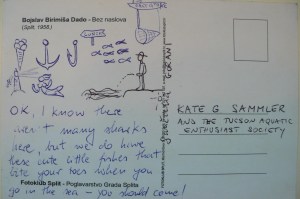 Bojslav Birimiša Dado - Bez naslova
(Split, 1958.)
OK, I know there
aren't many sharks
here, but we do have
these cute little fishes that
bite your toes when you
go in the sea - you should come!
Fotoklub Split - Poglavarstvo Grada Splita
KATE G SAMMLER
AND THE TUCSON AQUATIC
ENTHUSIAST SOCIETY